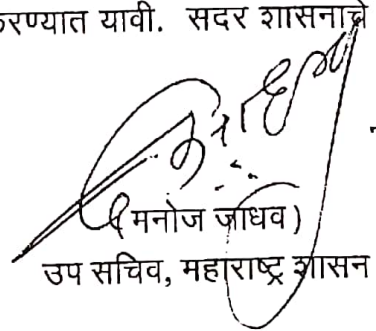 रण्यात यावी. सदर शासनाचे
(मनोज जाधव)
उप सचिव, महाराष्ट्र शासन